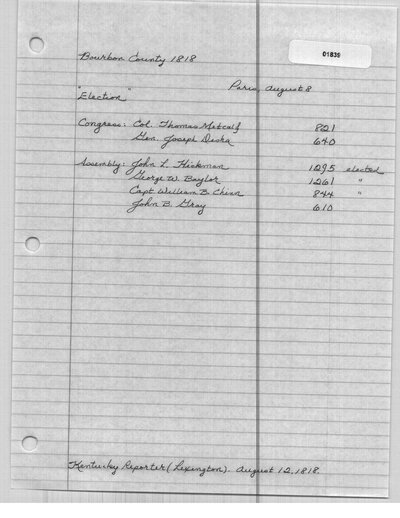 01839
Bourbon County 1818
Paris, August 8
"Election"
Congress: Col. Thomas Metcalf 821
Gen. Joseph Desha 640
Assembly: John L. Hickman 1295 elected
George W. Baylor 1261 "
Capt William B. Chinn 844 "
John B. Gray 610
Kentucky Reporter (Lexington). August 12, 1818.